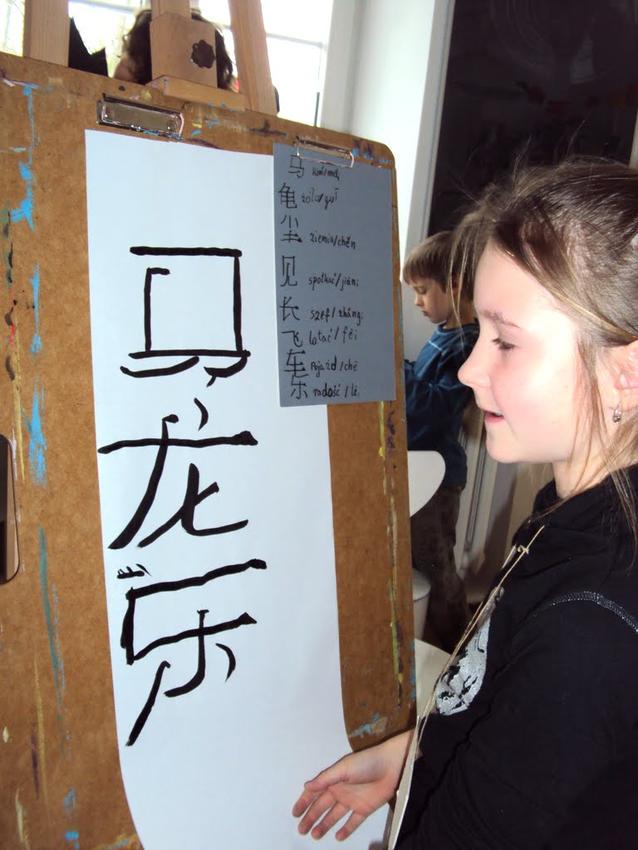 龙
乐
马 koń/mǎ
龟 żółw/guī
尘 ziemia/chén
见 spotkać/jiàn
长 szef/zhǎng
飞 latać/fēi
车 Pojazd/chē
乐 radość/lè